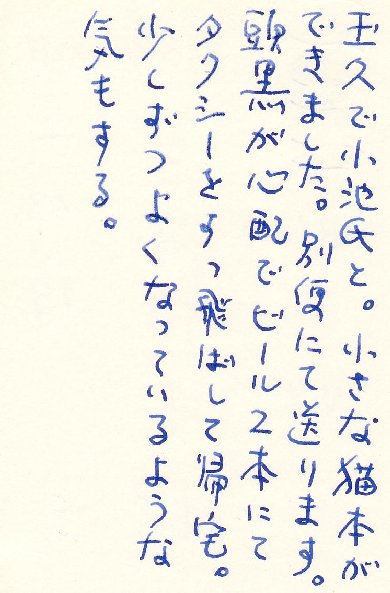 玉久で小池氏と。小さな猫本が
できました。別便にて送ります。
頭黒が心配でビール2本にて
タクシーをすっ飛ばして帰宅。
少しずつよくなっているような
気もする。